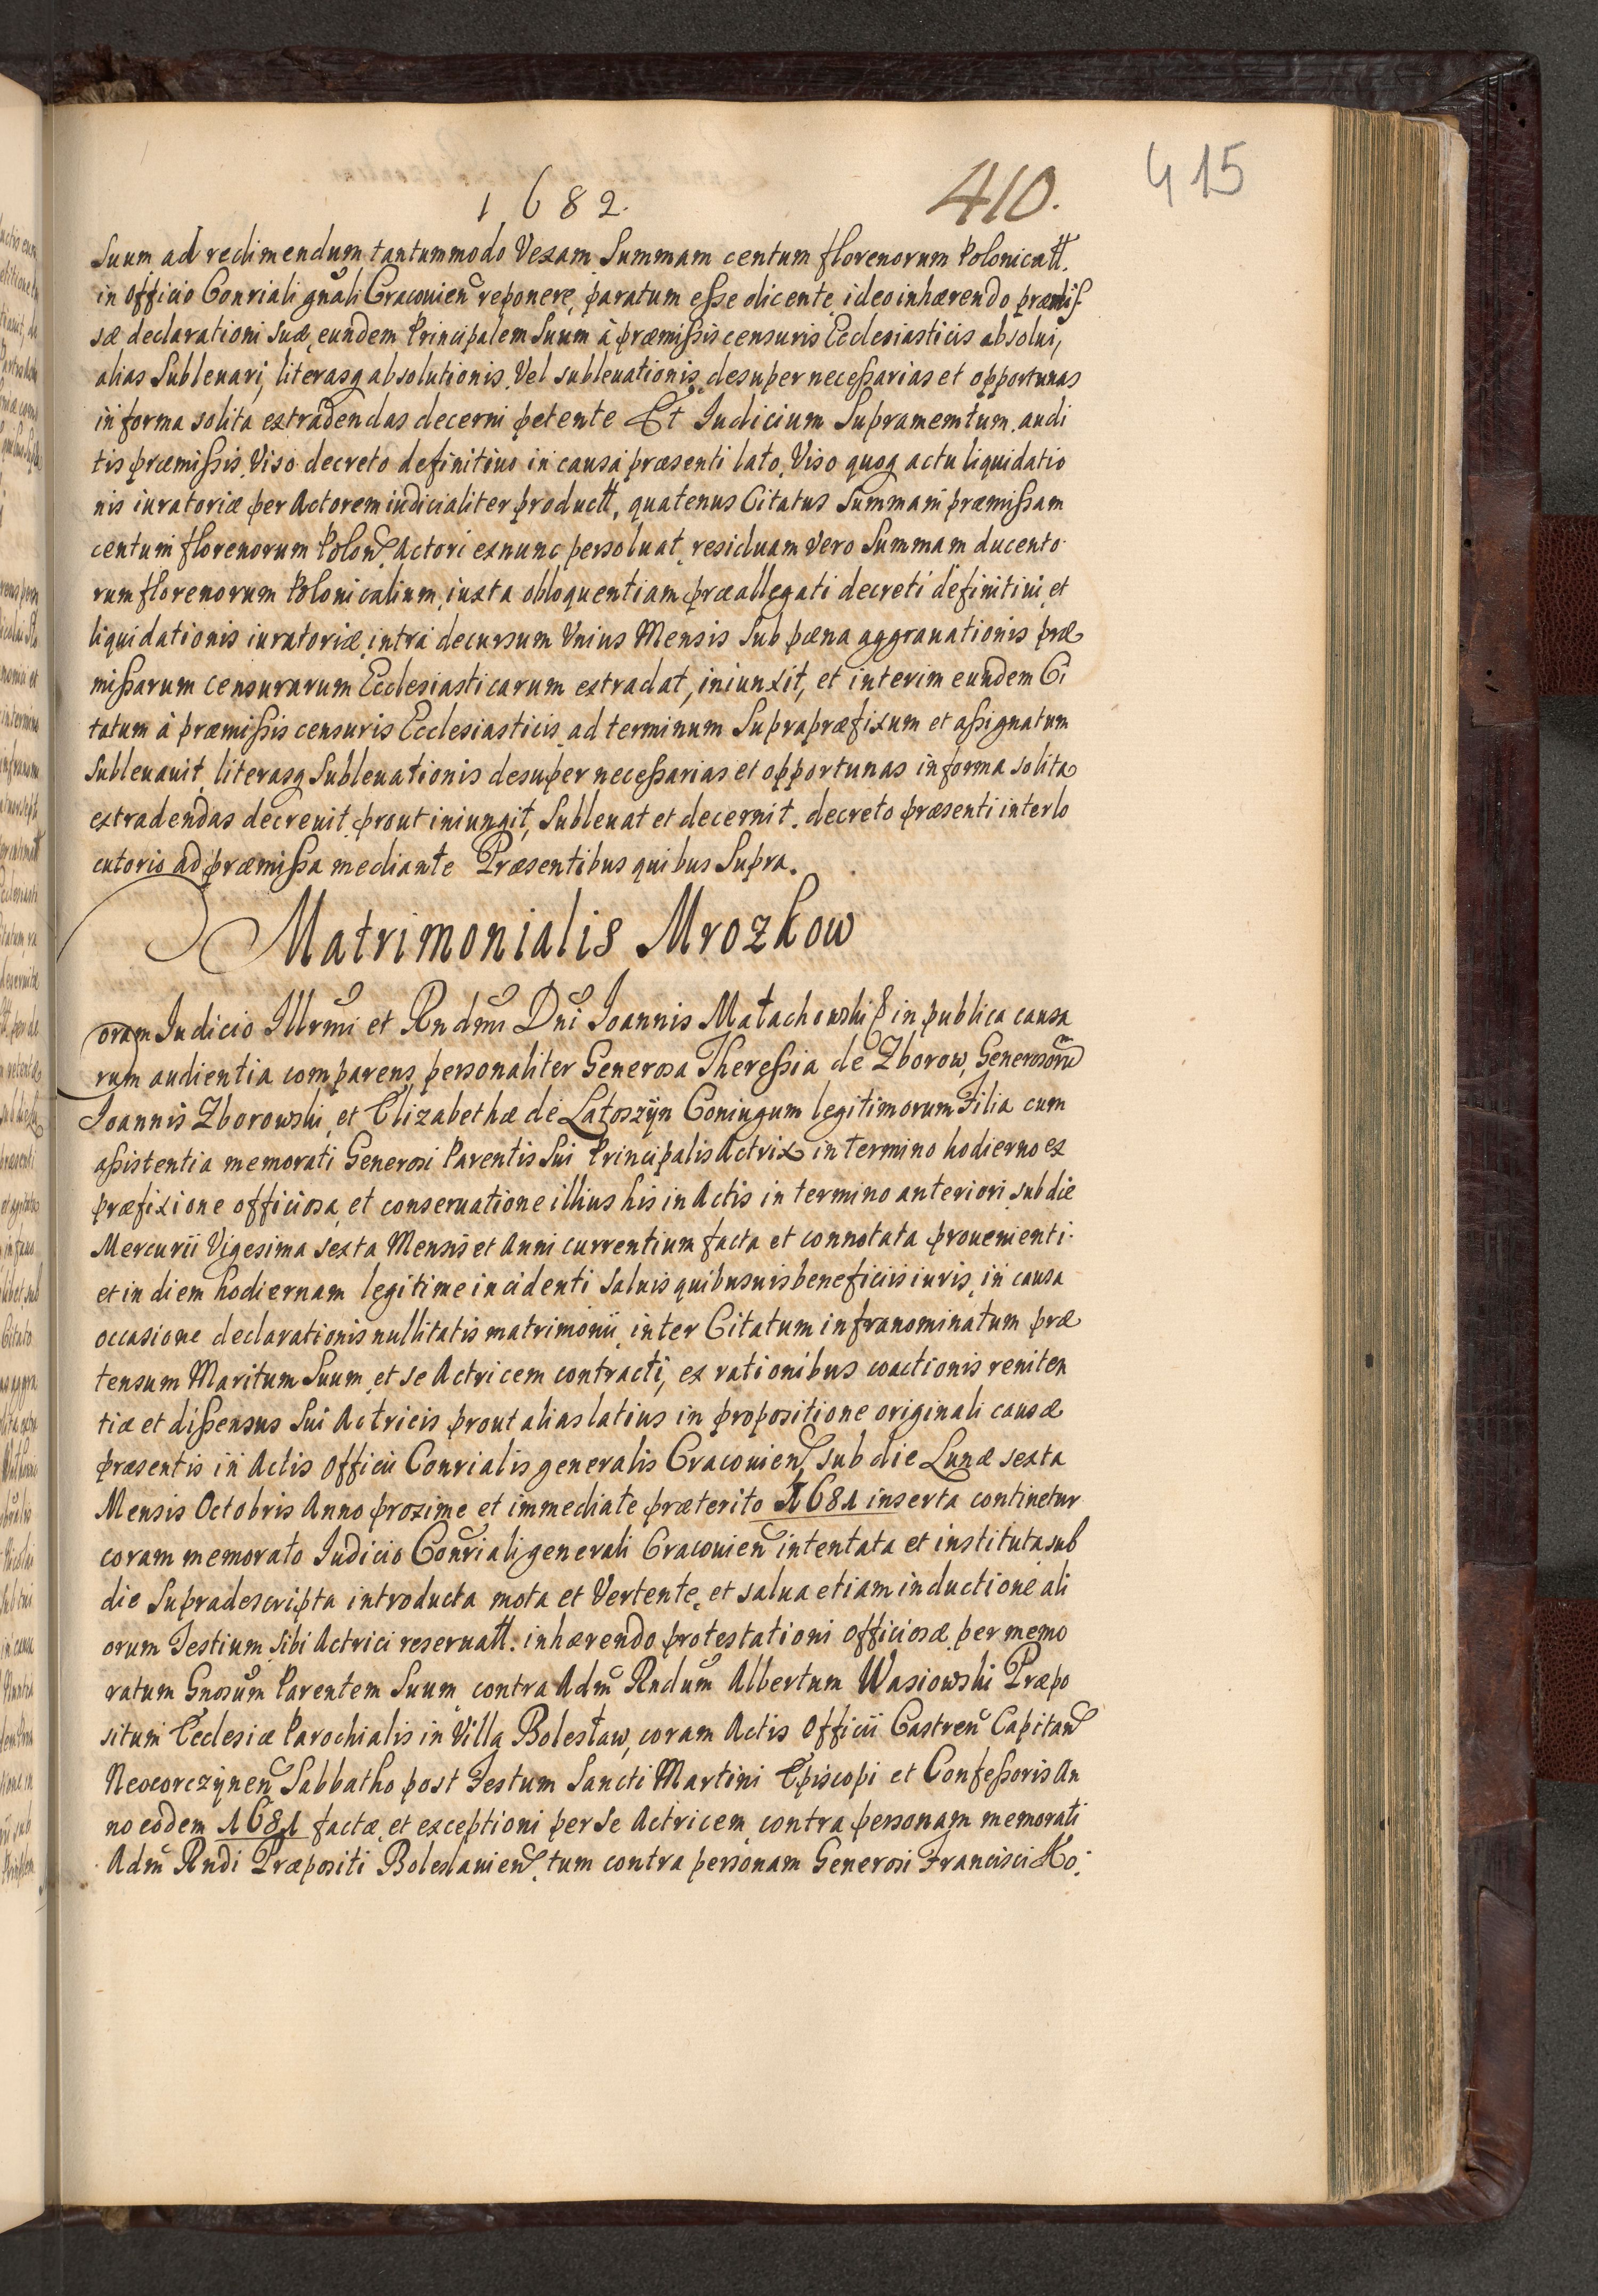 415
1682. 410.
Suum ad redimendum tantummodo Vexam Summam centum florenorum Polonicatt.
in Officio Conriali gnali Cracouien reponere, paratum esse dicente, ideo inhærendo præmis
sæ declarationi suæ, eundem Principalem Suum à præmissis censuris Ecclesiasticis absolui,
alias Subleuari, literasq absolutionis Vel subleuationis desuper necessarias et opportunas
in forma solita extradendas decerni petente Et Iudicium Supramemtum, audi
tis præmissis, Viso decreto definitiuo in causa præsenti lato, Viso quoq actu liquidatio
nis iuratoriæ per Actorem iudicialiter productt, quatenus Citatus Summam præmissam
centum florenorum Polon, Actori exnunc persoluat, residuam vero Summam ducento
rum florenorum Polonicalium, iuxta obloquentiam præallegati decreti definitiui, et
liquidationis iuratoriæ, intra decursum Vnius Mensis Sub pœna aggrauationis præ
missarum censurarum Ecclesiasticarum extradat, iniunxit, et interim eundem Ci
tatum à præmissis censuris Ecclesiasticis ad terminum Supraprӕfixum et assignatum
Subleuauit, literasq Subleuationis desuper necessarias et opportunas in forma solita
extradendas decreuit, prout iniungit, Subleuat et decernit. decreto præsenti interlo
cutorio ad præmissa mediante Præsentibus quibus Supra.
Matrimonialis Mrozkow
Coram Iudicio Illrmi et Rndmi Dni Ioannis Małachowski in publica causa
rum audientia comparens personaliter Generosa Theressia de Zborow, Generosoru
Ioannis Zborowski, et Elizabethæ de Latoszÿn Coniugum legitimorum Filia cum
assistentia memorati Generosi Parentis Sui Principalis Actrix in termino hodierno ex
præfixione officiosa, et conseruatione illius his in Actis in termino anteriori sub die
Mercurii Vigesima sexta Mensis et Anni currentium facta et connotata prouenienti
et in diem hodiernam legitime incidenti saluis quibusuis beneficiis iuris, in causa
occasione declarationis nullitatis matrimonii, inter Citatum infranominatum præ
tensum Maritum Suum, et se Actricem contracti, ex rationibus coactionis reniten
tiæ et dissensus Sui Actricis prout alias latius in propositione originali causæ
præsentis in Actis Officii Conrialis generalis Cracouien, sub die Lunæ sexta
Mensis Octobris Anno proxime et immediate præterito 1681 inserta continetur
coram memorato Iudicio Conriali generali Cracouien intentata et instituta sub
die Supradescripta introducta mota et Vertente, et salua etiam inductione ali
orum Testium sibi Actrici reseruatt. inhærendo protestationi officiosæ per memo
ratum Gnosum Parentem Suum contra Adm Rndum Albertum Wasiowski Præpo
situm Ecclesiæ Parochialis in Villa Bolesław, coram Actis Officii Castren Capitan
Neocorczÿnen Sabbatho post Festum Sancti Martini Episcopi et Confessoris An
no eodem 1681 factæ, et exceptioni per se Actricem contra personam memorati
Adm Rndi Præpositi Boleslauien, tum contra personam Generosi Francisci Ko: